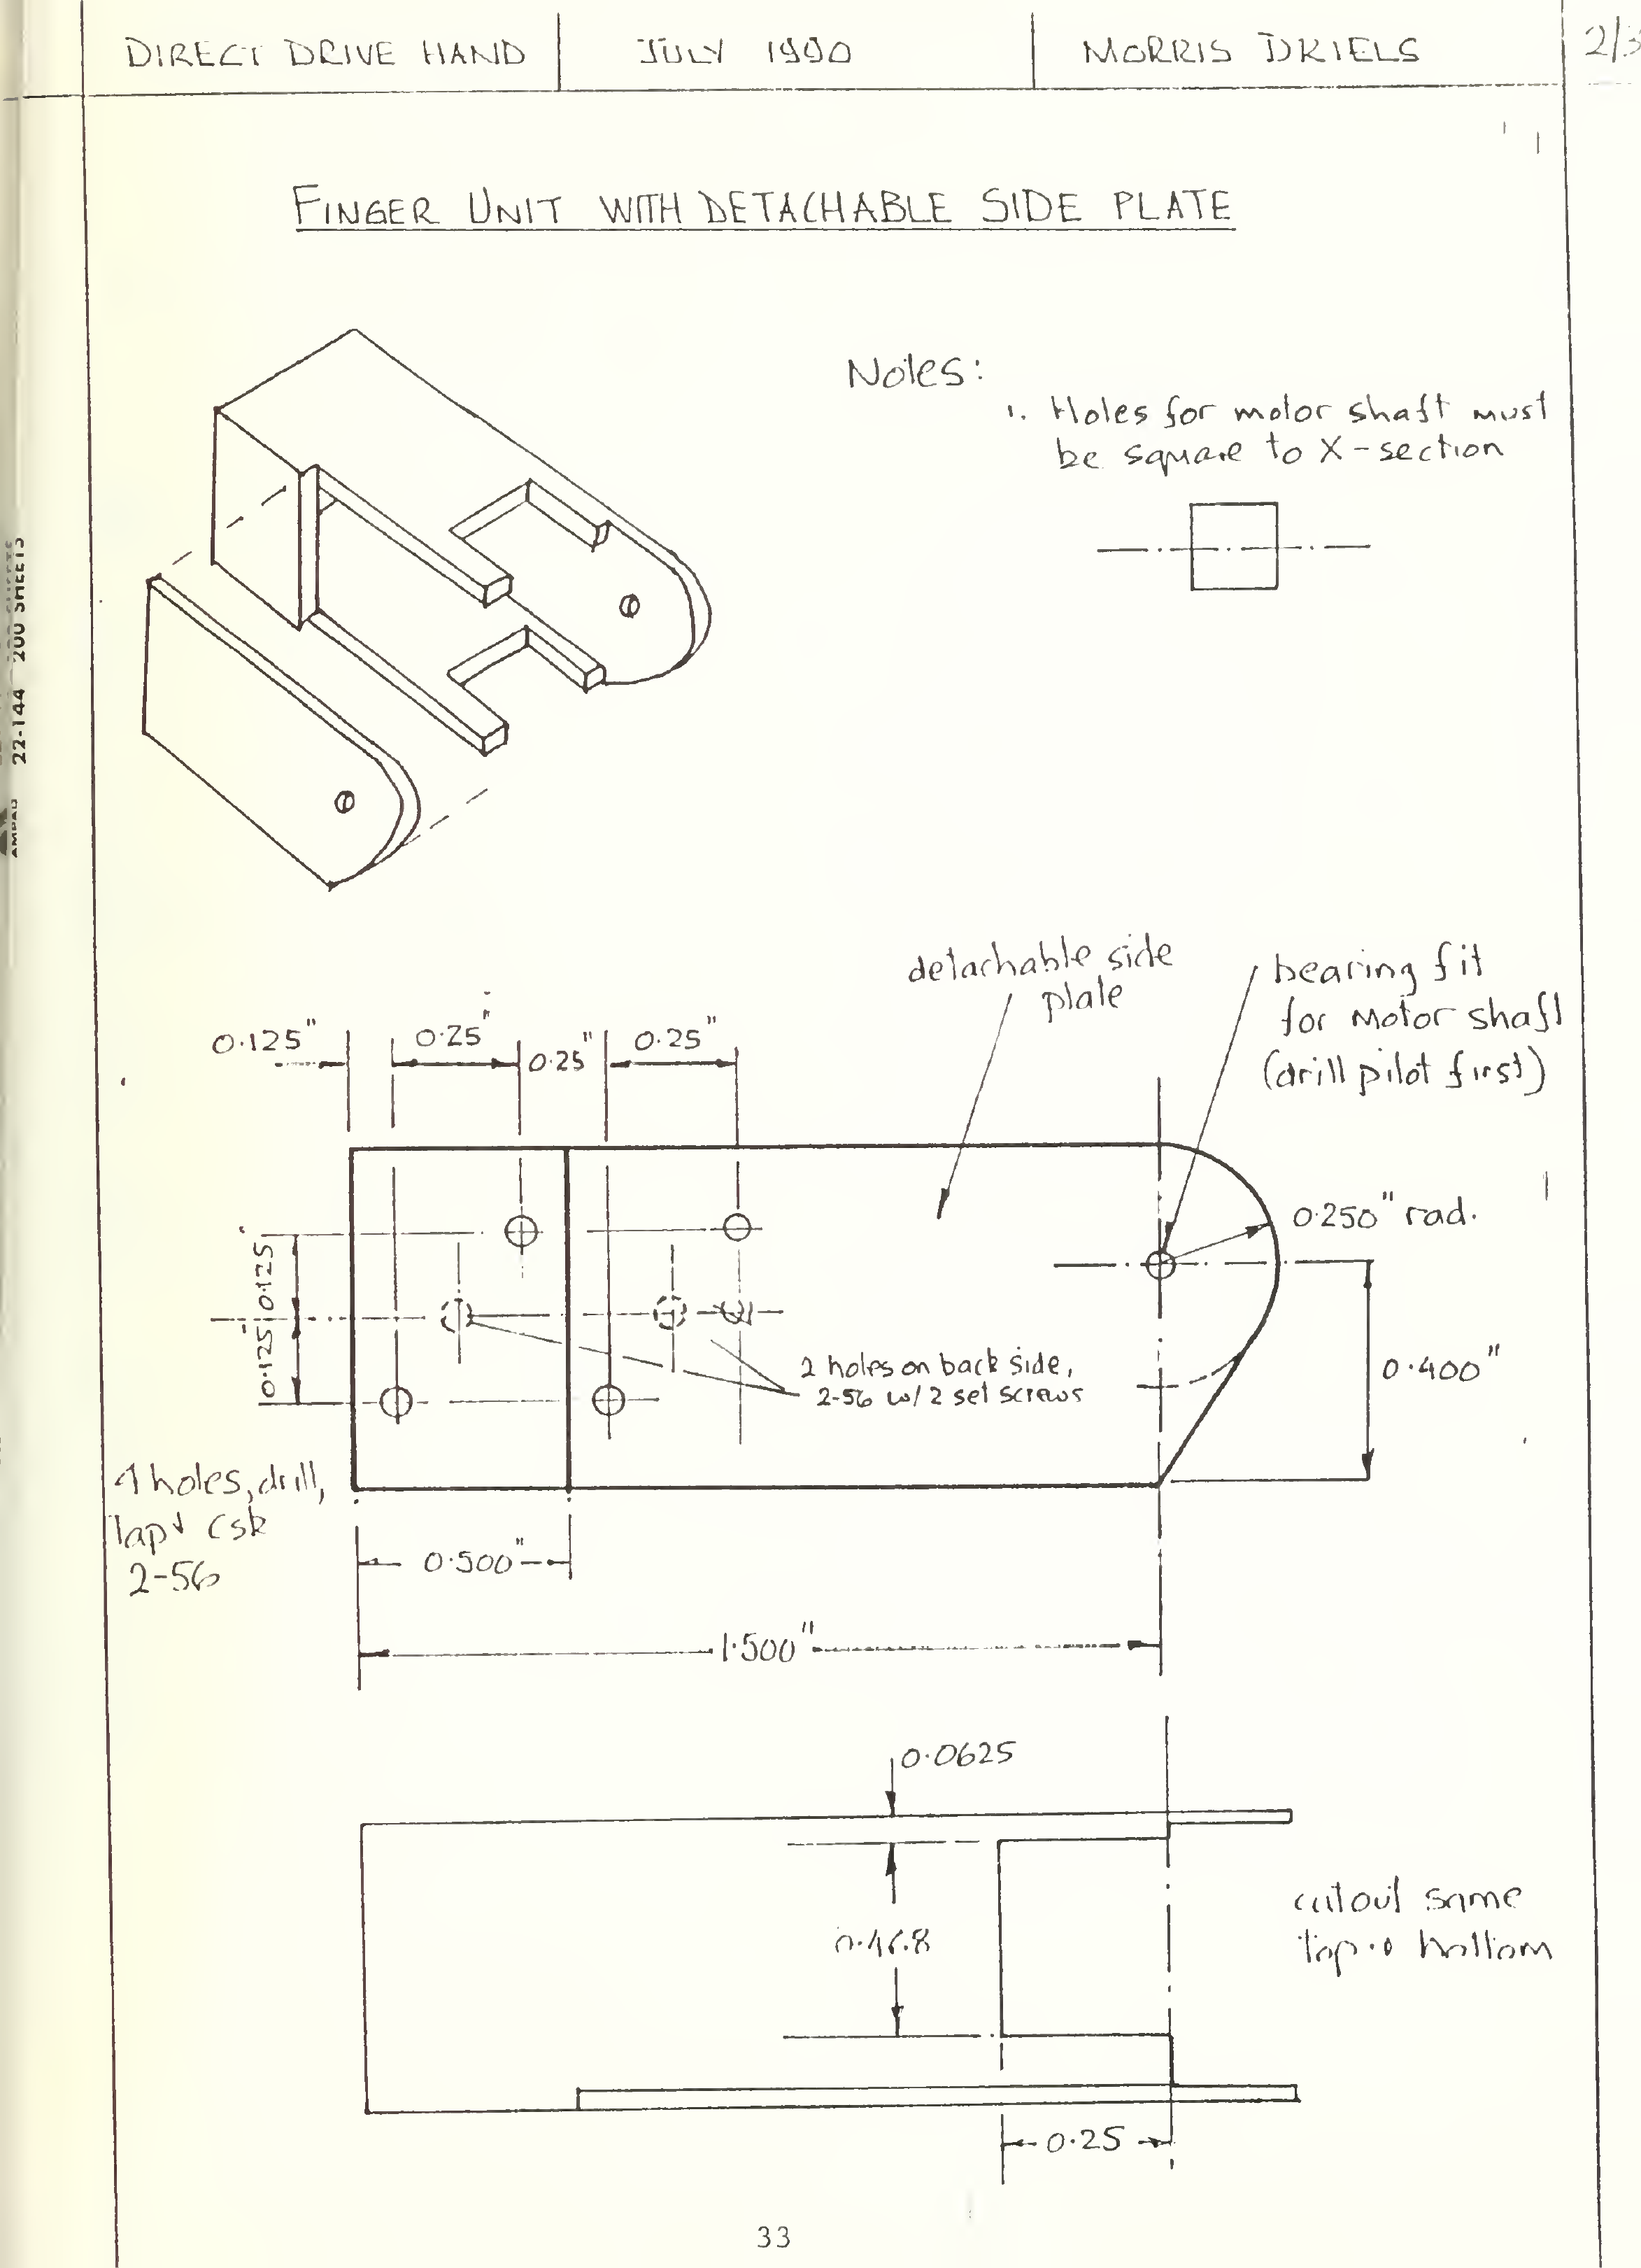 DIRECT DRIVE HAND
JULY 1990
MORRIS DRIELS
2/3
FINGER UNIT WITH DETACHABLE SIDE PLATE
Notes:
1. Holes for motor shaft must
be square to X-section
22-144 200 SHEETS
AMPAD
detachable side
plate
bearing fit
for motor shaft
(drill pilot first)
0.125"
0.25"
0.25"
0.25"
0.250" rad.
0.125
0.125
2 holes on back side,
2-56 w/ 2 set screws
0.400"
4 holes, drill,
tap + csk
2-56
0.500"
1.500"
0.0625
cutout same
top + bottom
0.25
33